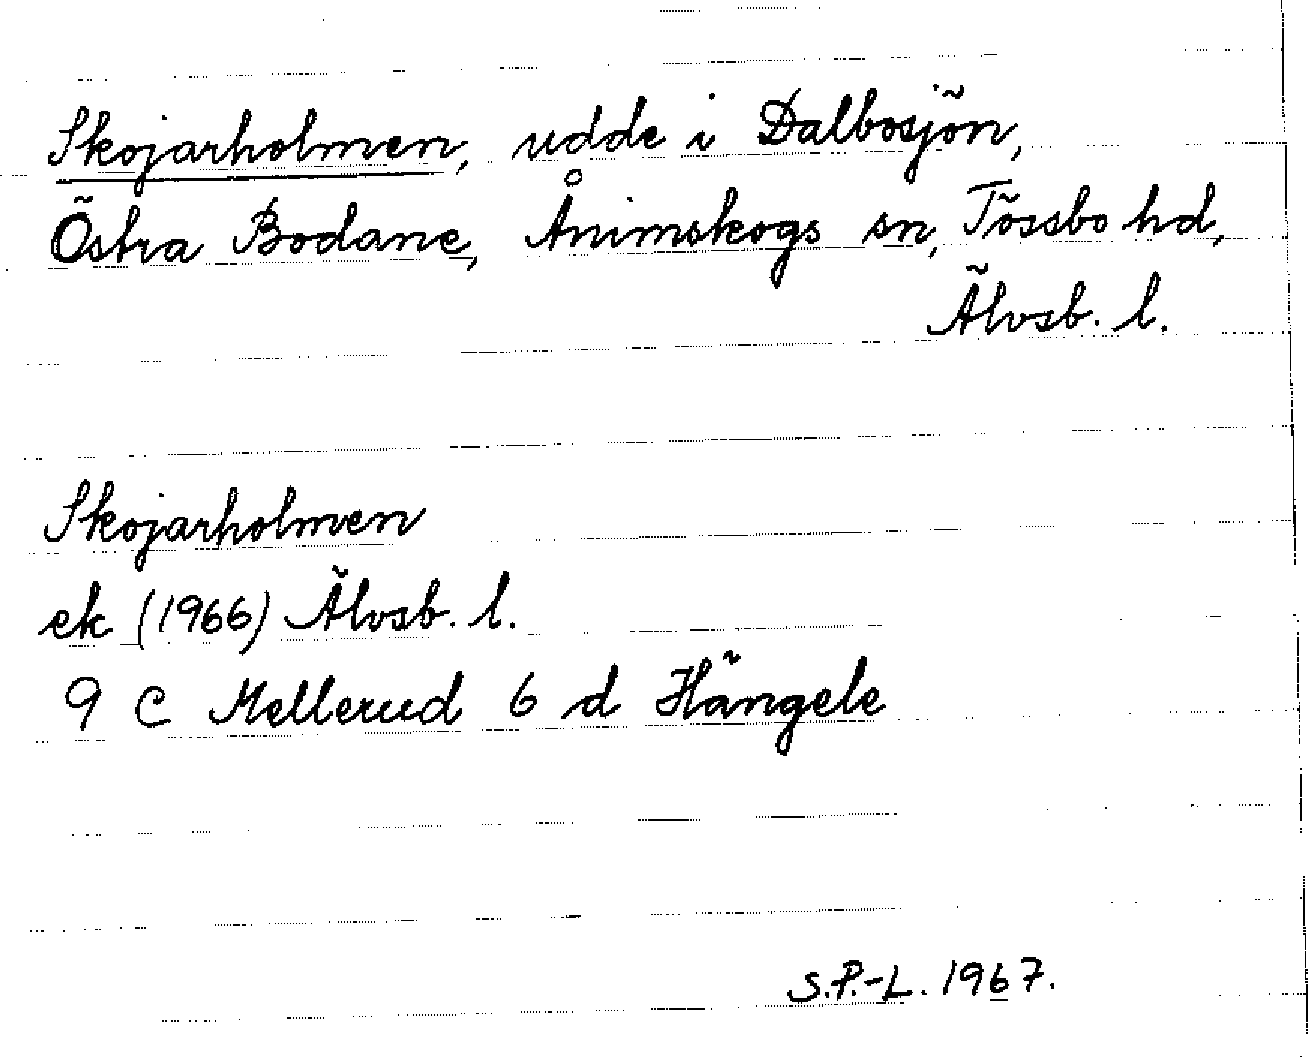 Skojarholmen, udde i Dalbosjön,
Östra Bodane, Ånimskogs sn, Tössbo hd,
Älvsb. l.
Skojarholmen
ek (1966) Älvsb. l.
9 C Mellerud 6 d Hängele
S.P.-L. 1967.